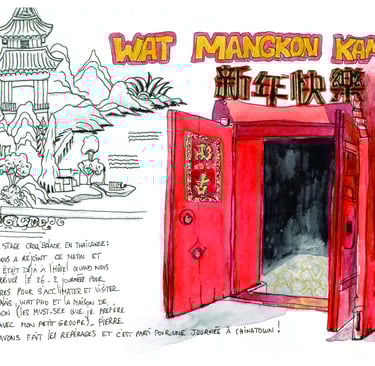 WAT MANGKON KAM
新年快樂
STAGE CROQ'BALADE EN THAÏLANDE:
OUS A REJOINT CE MATIN ET
ÉTAIT DÉJÀ À L'HÔTEL QUAND NOUS
LE 26 - 2 JOURNÉE POUR
POUR S'ACCLIMATER ET VISITER
WAT PHO ET LA MAISON DE
(LES MUST-SEE QUE JE PRÉFÈRE
AVEC MON PETIT GROUPE)_ PIERRE
AVONS FAIT LES REPÉRAGES ET C'EST PARTI POUR UNE JOURNÉE À CHINATOWN !